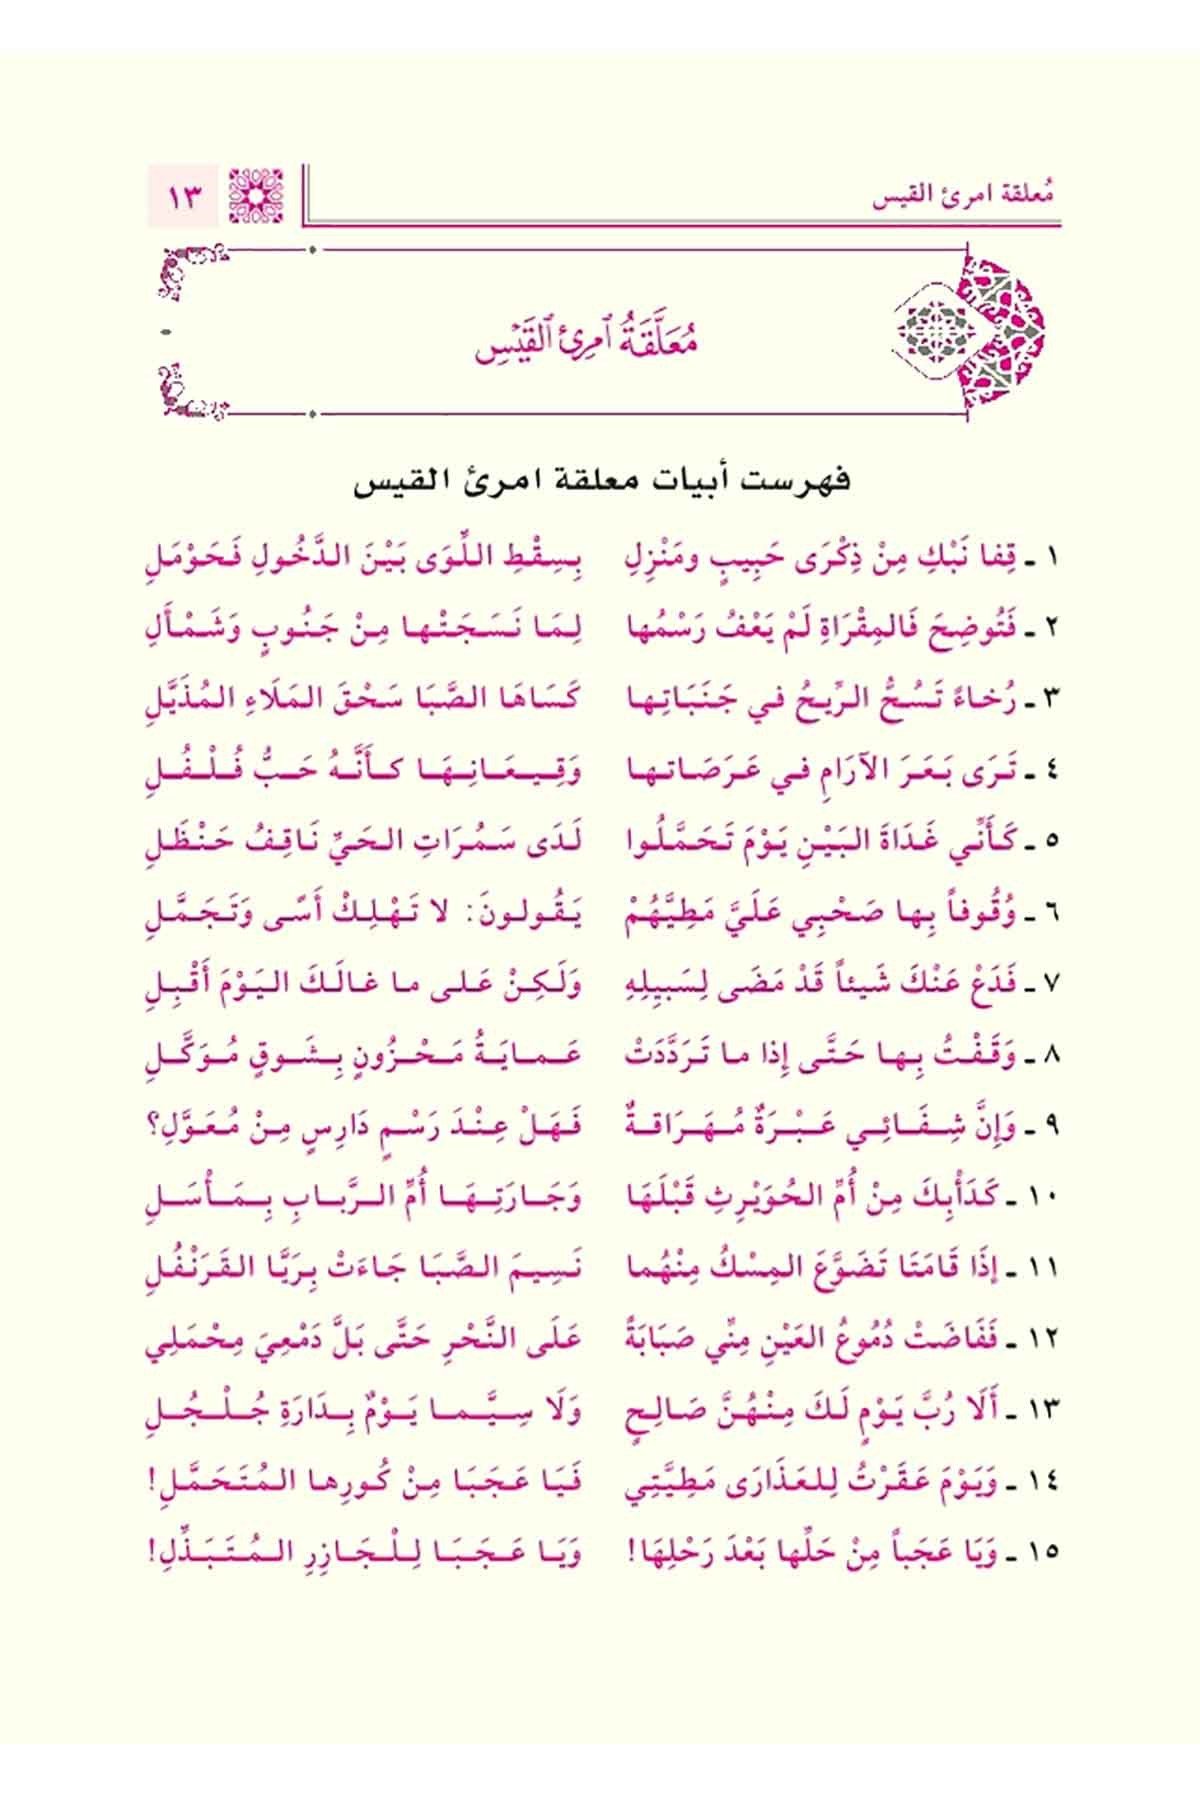 مُعلقة امرئ القيس ١٣
مُعَلَّقَةُ ٱمرِئِ ٱلقَيْسِ
فهرست أبيات معلقة امرئ القيس
١ ـ قِفا نَبْكِ مِنْ ذِكْرَى حَبِيبٍ ومَنْزِلِ بِسِقْطِ اللِّوَى بَيْنَ الدَّخُولِ فَحَوْمَلِ
٢ ـ فَتُوضِحَ فَالمِقْرَاةِ لَمْ يَعْفُ رَسْمُها لِمَا نَسَجَتْها مِنْ جَنُوبٍ وَشَمْأَلِ
٣ ـ رُخاءً تَسُحُّ الرِّيحُ في جَنَبَاتِها كَسَاهَا الصَّبَا سَحْقَ المَلَاءِ المُذَيَّلِ
٤ ـ تَرَى بَعَرَ الآرَامِ في عَرَصَاتها وَقِيعَانِهَا كأَنَّهُ حَبُّ فُلْفُلِ
٥ ـ كَأَنِّي غَدَاةَ البَيْنِ يَوْمَ تَحَمَّلُوا لَدَى سَمُرَاتِ الحَيِّ نَاقِفُ حَنْظَلِ
٦ ـ وُقُوفاً بِها صَحْبِي عَلَيَّ مَطِيَّهُمْ يَقُولونَ: لا تَهْلِكْ أَسًى وَتَجَمَّلِ
٧ ـ فَدَعْ عَنْكَ شَيئاً قَدْ مَضَى لِسَبِيلِهِ وَلَكِنْ عَلى ما غالَكَ اليَوْمَ أَقْبِلِ
٨ ـ وَقَفْتُ بِها حَتَّى إِذا ما تَرَدَّدَتْ عَمايَةُ مَحْزُونٍ بِشَوقٍ مُوَكَّلِ
٩ ـ وَإِنَّ شِفَائِي عَبْرَةٌ مُهَرَاقةٌ فَهَلْ عِنْدَ رَسْمٍ دَارِسٍ مِنْ مُعَوَّلِ؟
١٠ ـ كَدَأْبِكَ مِنْ أُمِّ الحُوَيْرِثِ قَبْلَهَا وَجَارَتِهَا أُمِّ الرَّبابِ بِمَأْسَلِ
١١ ـ إذَا قَامَتَا تَضَوَّعَ المِسْكُ مِنْهُما نَسِيمَ الصَّبَا جَاءَتْ بِرَيَّا القَرَنْفُلِ
١٢ ـ فَفَاضَتْ دُمُوعُ العَيْنِ مِنِّي صَبَابَةً عَلَى النَّحْرِ حَتَّى بَلَّ دَمْعِيَ مِحْمَلِي
١٣ ـ أَلَا رُبَّ يَوْمٍ لَكَ مِنْهُنَّ صَالِحٍ وَلَا سِيَّما يَوْمٌ بِدَارَةِ جُلْجُلِ
١٤ ـ وَيَوْمَ عَقَرْتُ لِلعَذَارَى مَطِيَّتِي فَيَا عَجَبَا مِنْ كُورِها المُتَحَمَّلِ!
١٥ ـ وَيَا عَجَباً مِنْ حَلِّها بَعْدَ رَحْلِهَا! وَيَا عَجَبَا لِلْجَازِرِ المُتَبَذِّلِ!